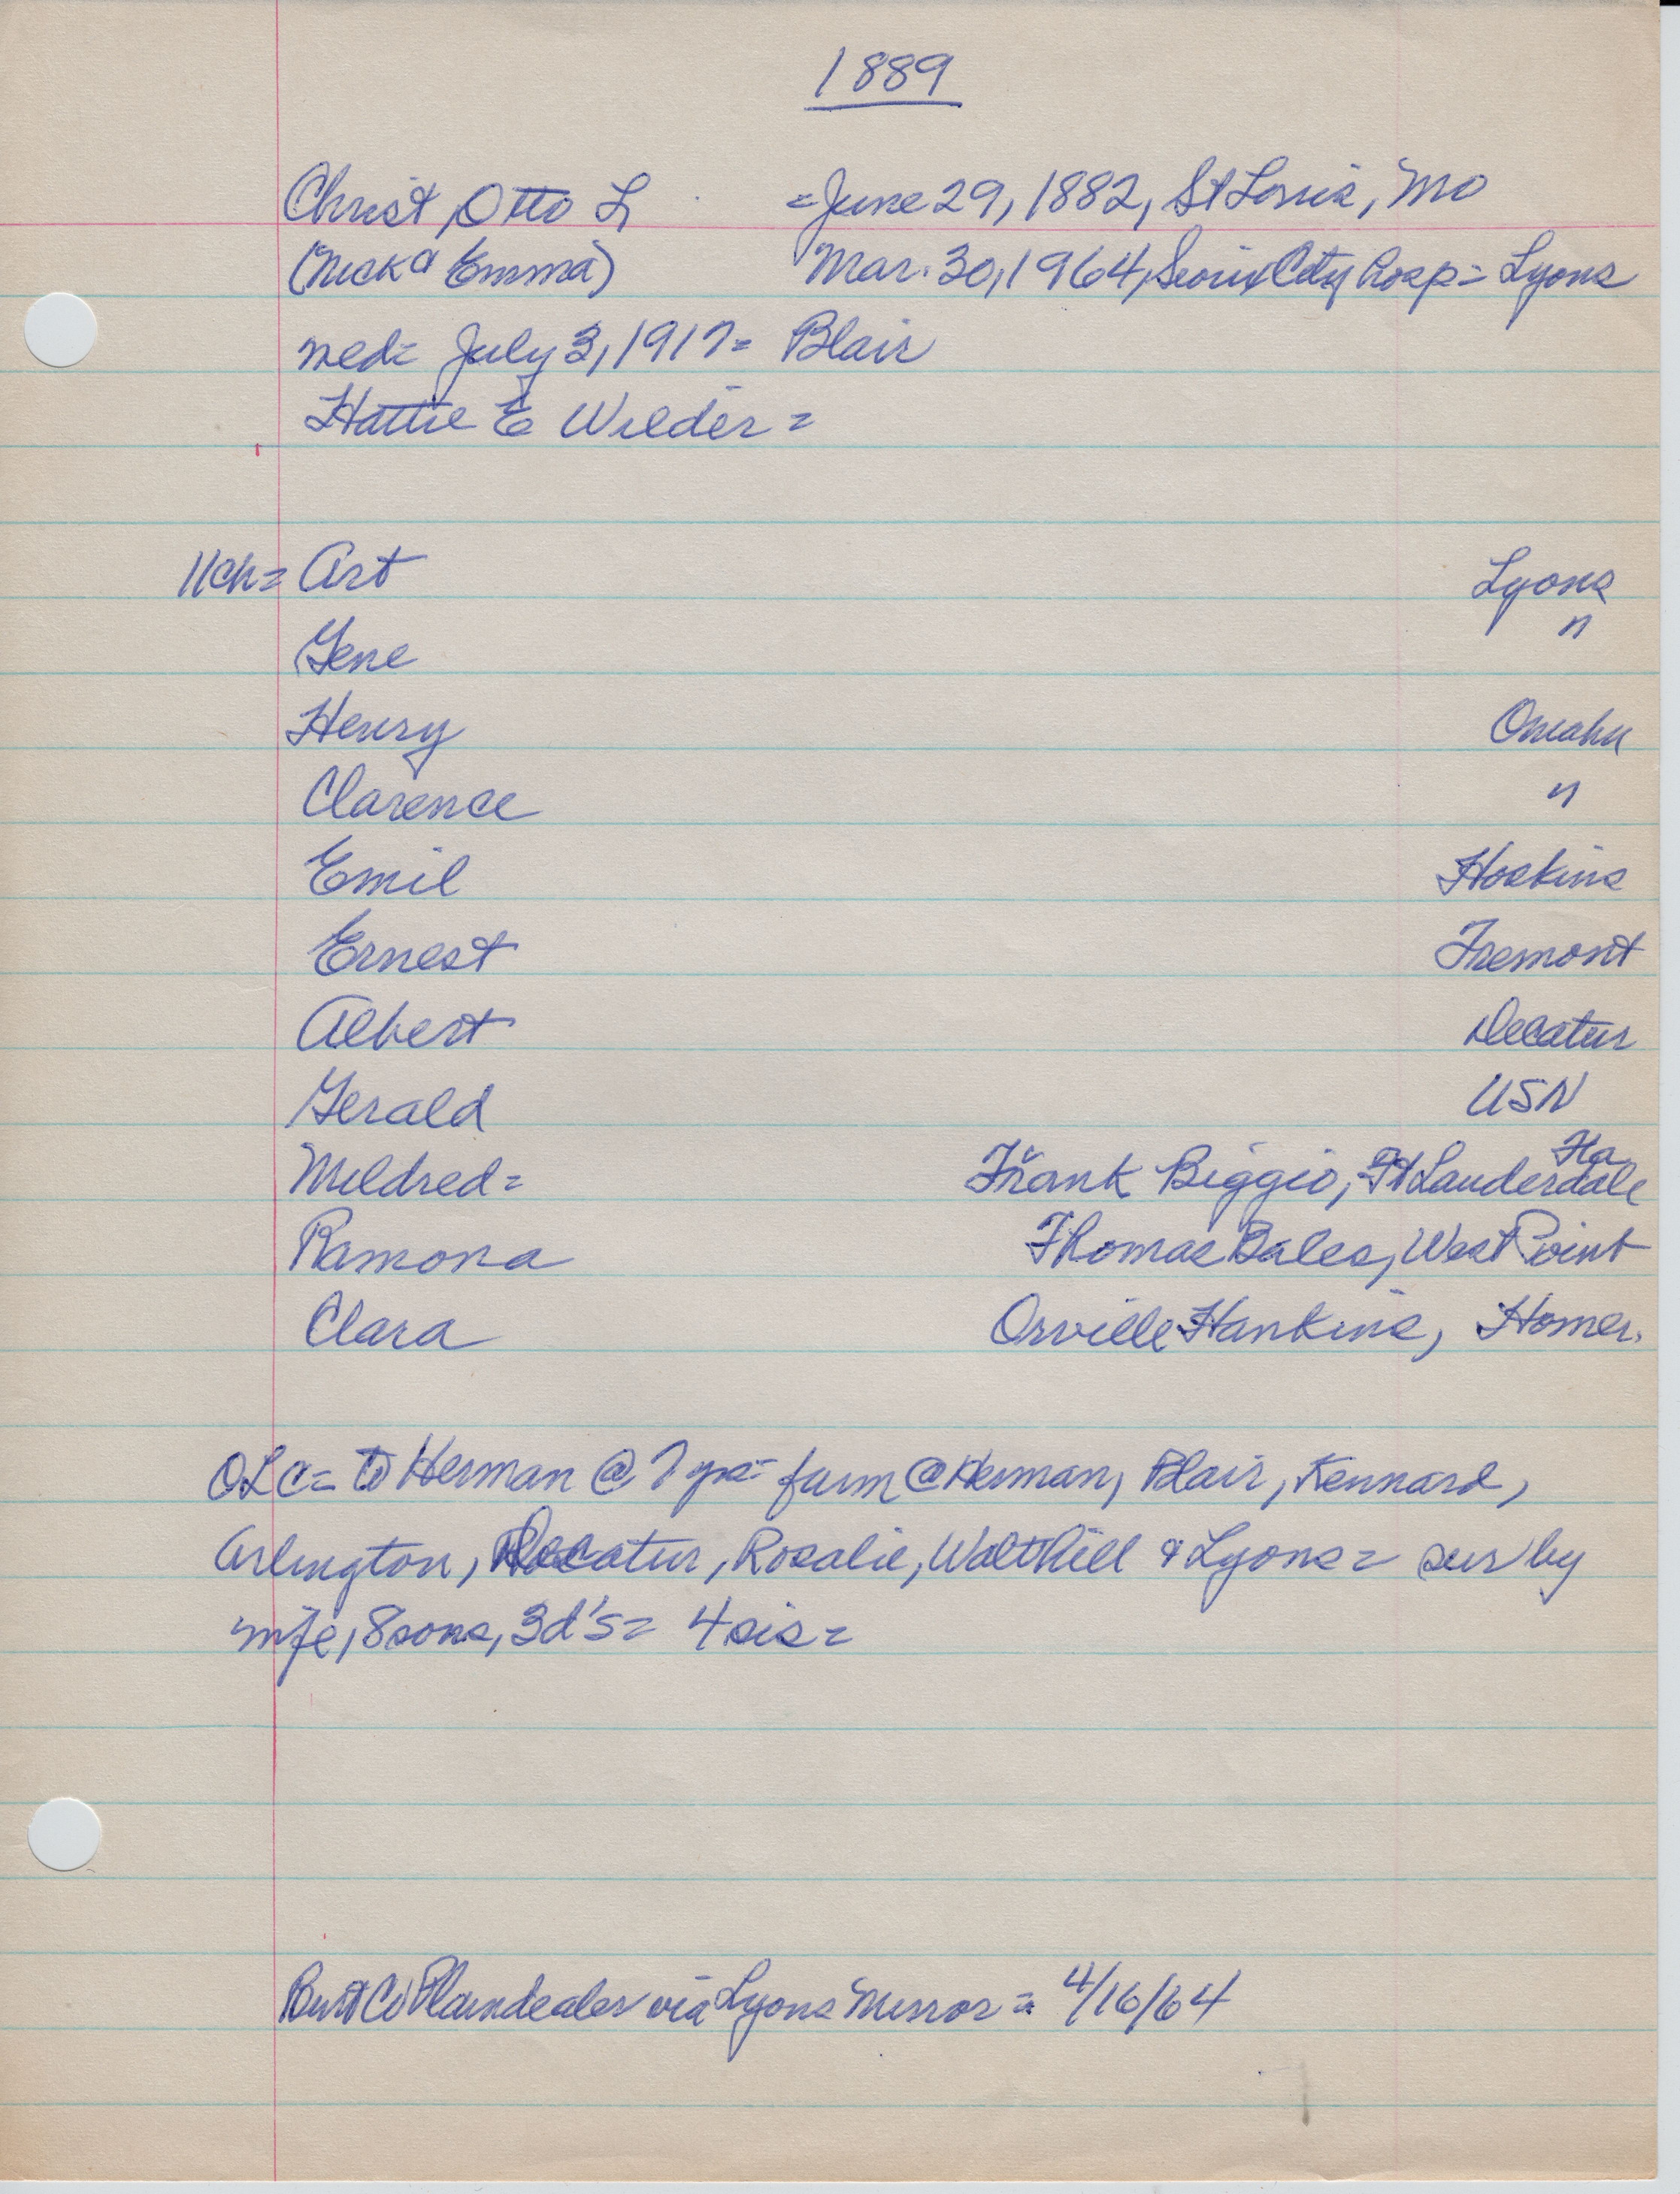 1889
Christ, Otto L = June 29, 1882, St Louis, Mo
(Nick & Emma) Mar. 30, 1964, Sioux City hosp = Lyons
med = July 3, 1917 = Blair
Hattie E Wilder =
11ch = Art Lyons
Gene "
Henry Omaha
Clarence "
Emil Hoskins
Ernest Fremont
Albert Decatur
Gerald USN
Mildred = Frank Biggio, Ft Lauderdale Fla
Ramona Thomas Bales, West Point
Clara Orville Hankins, Homer.
OLC = to Herman @ 7 yrs = farm @ Herman, Blair, Kennard,
Arlington, Decatur, Rosalie, Walthill & Lyons = sur by
wife, 8 sons, 3 d's = 4 sis =
Burt Co Plaindealer via Lyons Mirror = 4/16/64